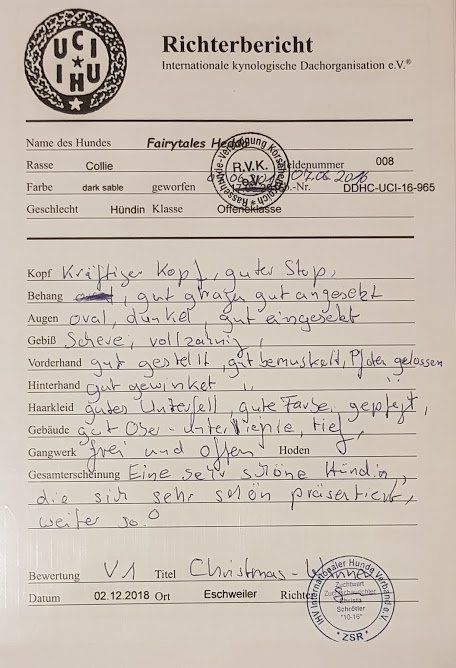 UCI
IHU
Richterbericht
Internationale kynologische Dachorganisation e.V.®
Name des Hundes Fairytales Hedda
Rasse Collie Meldenummer 008
Farbe dark sable geworfen 07.06.2016 Zb.-Nr. DDHC-UCI-16-965
Geschlecht Hündin Klasse Offeneklasse
R.V.K.
e.V.
Kopf Kräftiger Kopf, guter Stop,
Behang , gut getragen gut angesetzt
Augen oval, dunkel, gut eingesetzt
Gebiß Schere, vollzahnig,
Vorderhand gut gestellt, gut bemuskelt, Pfoten gelossen
Hinterhand gut gewinkelt " "
Haarkleid gutes Unterfell, gute Farbe, gepflegt,
Gebäude gut Ober- unterlienie, tief,
Gangwerk frei und offen Hoden
Gesamterscheinung Eine sehr schöne Hündin,
die sich sehr schön präsentiert,
weiter so.
Bewertung V1 Titel Christmas-Winner
Datum 02.12.2018 Ort Eschweiler Richter
IHV Internationaler Hunde Verband e.V.
Zuchtwart
Zuchtschaurichter
Christa
Schrötter
"10-16"
* ZSR *